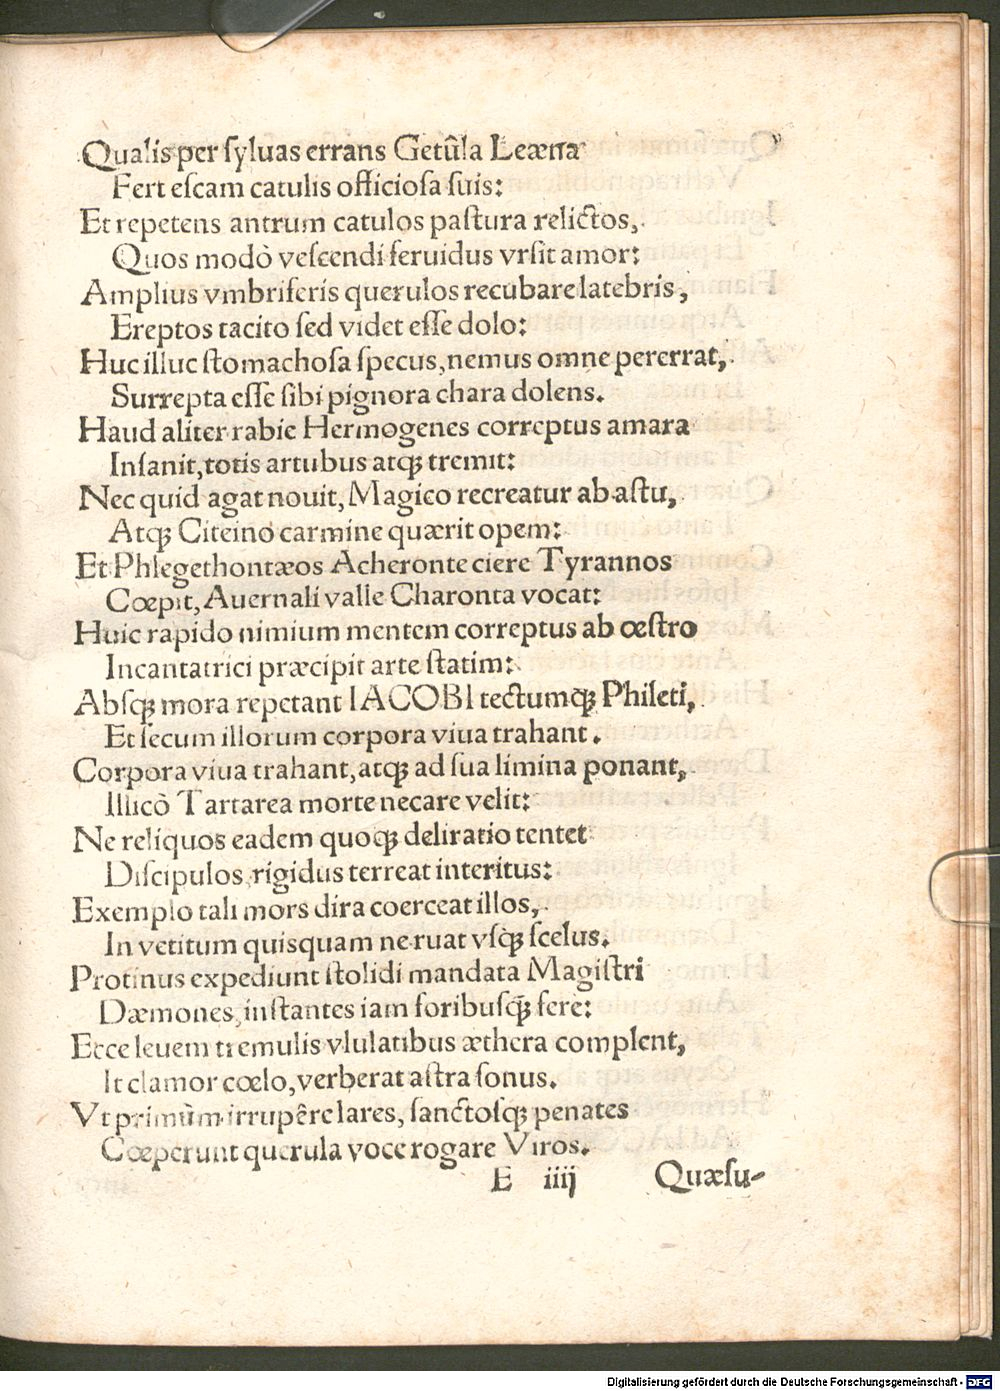 Qualis per ſyluas errans Getûla Leæna
Fert eſcam catulis officioſa ſuis:
Et repetens antrum catulos paſtura relictos,
Quos modò veſcendi feruidus vrſit amor:
Amplius vmbriferis querulos recubare latebris,
Ereptos tacito ſed videt eſſe dolo:
Huc illuc ſtomachoſa ſpecus, nemus omne pererrat,
Surrepta eſſe ſibi pignora chara dolens.
Haud aliter rabie Hermogenes correptus amara
Inſanit, totis artubus atqꝫ tremit:
Nec quid agat nouit, Magico recreatur ab aſtu,
Atqꝫ Citeino carmine quærit opem:
Et Phlegethontæos Acheronte ciere Tyrannos
Cœpit, Auernali valle Charonta vocat:
Huic rapido nimium mentem correptus ab œſtro
Incantatrici præcipit arte ſtatim:
Abſqꝫ mora repetant IACOBI tectumqꝫ Phileti,
Et ſecum illorum corpora viua trahant.
Corpora viua trahant, atqꝫ ad ſua limina ponant,
Illicò Tartarea morte necare velit:
Ne reliquos eadem quoqꝫ deliratio tentet
Diſcipulos, rigidus terreat interitus:
Exemplo tali mors dira coerceat illos,
In vetitum quiſquam ne ruat vſqꝫ ſcelus.
Protinus expediunt ſtolidi mandata Magiſtri
Dæmones, inſtantes iam foribuſqꝫ fere:
Ecce leuem tremulis vlulatibus æthera complent,
It clamor cœlo, verberat aſtra ſonus.
Vt primùm irrupêre lares, ſanctoſqꝫ penates
Cœperunt querula voce rogare Viros.
E iiij Quæſu-
Digitalisierung gefördert durch die Deutsche Forschungsgemeinschaft - DFG